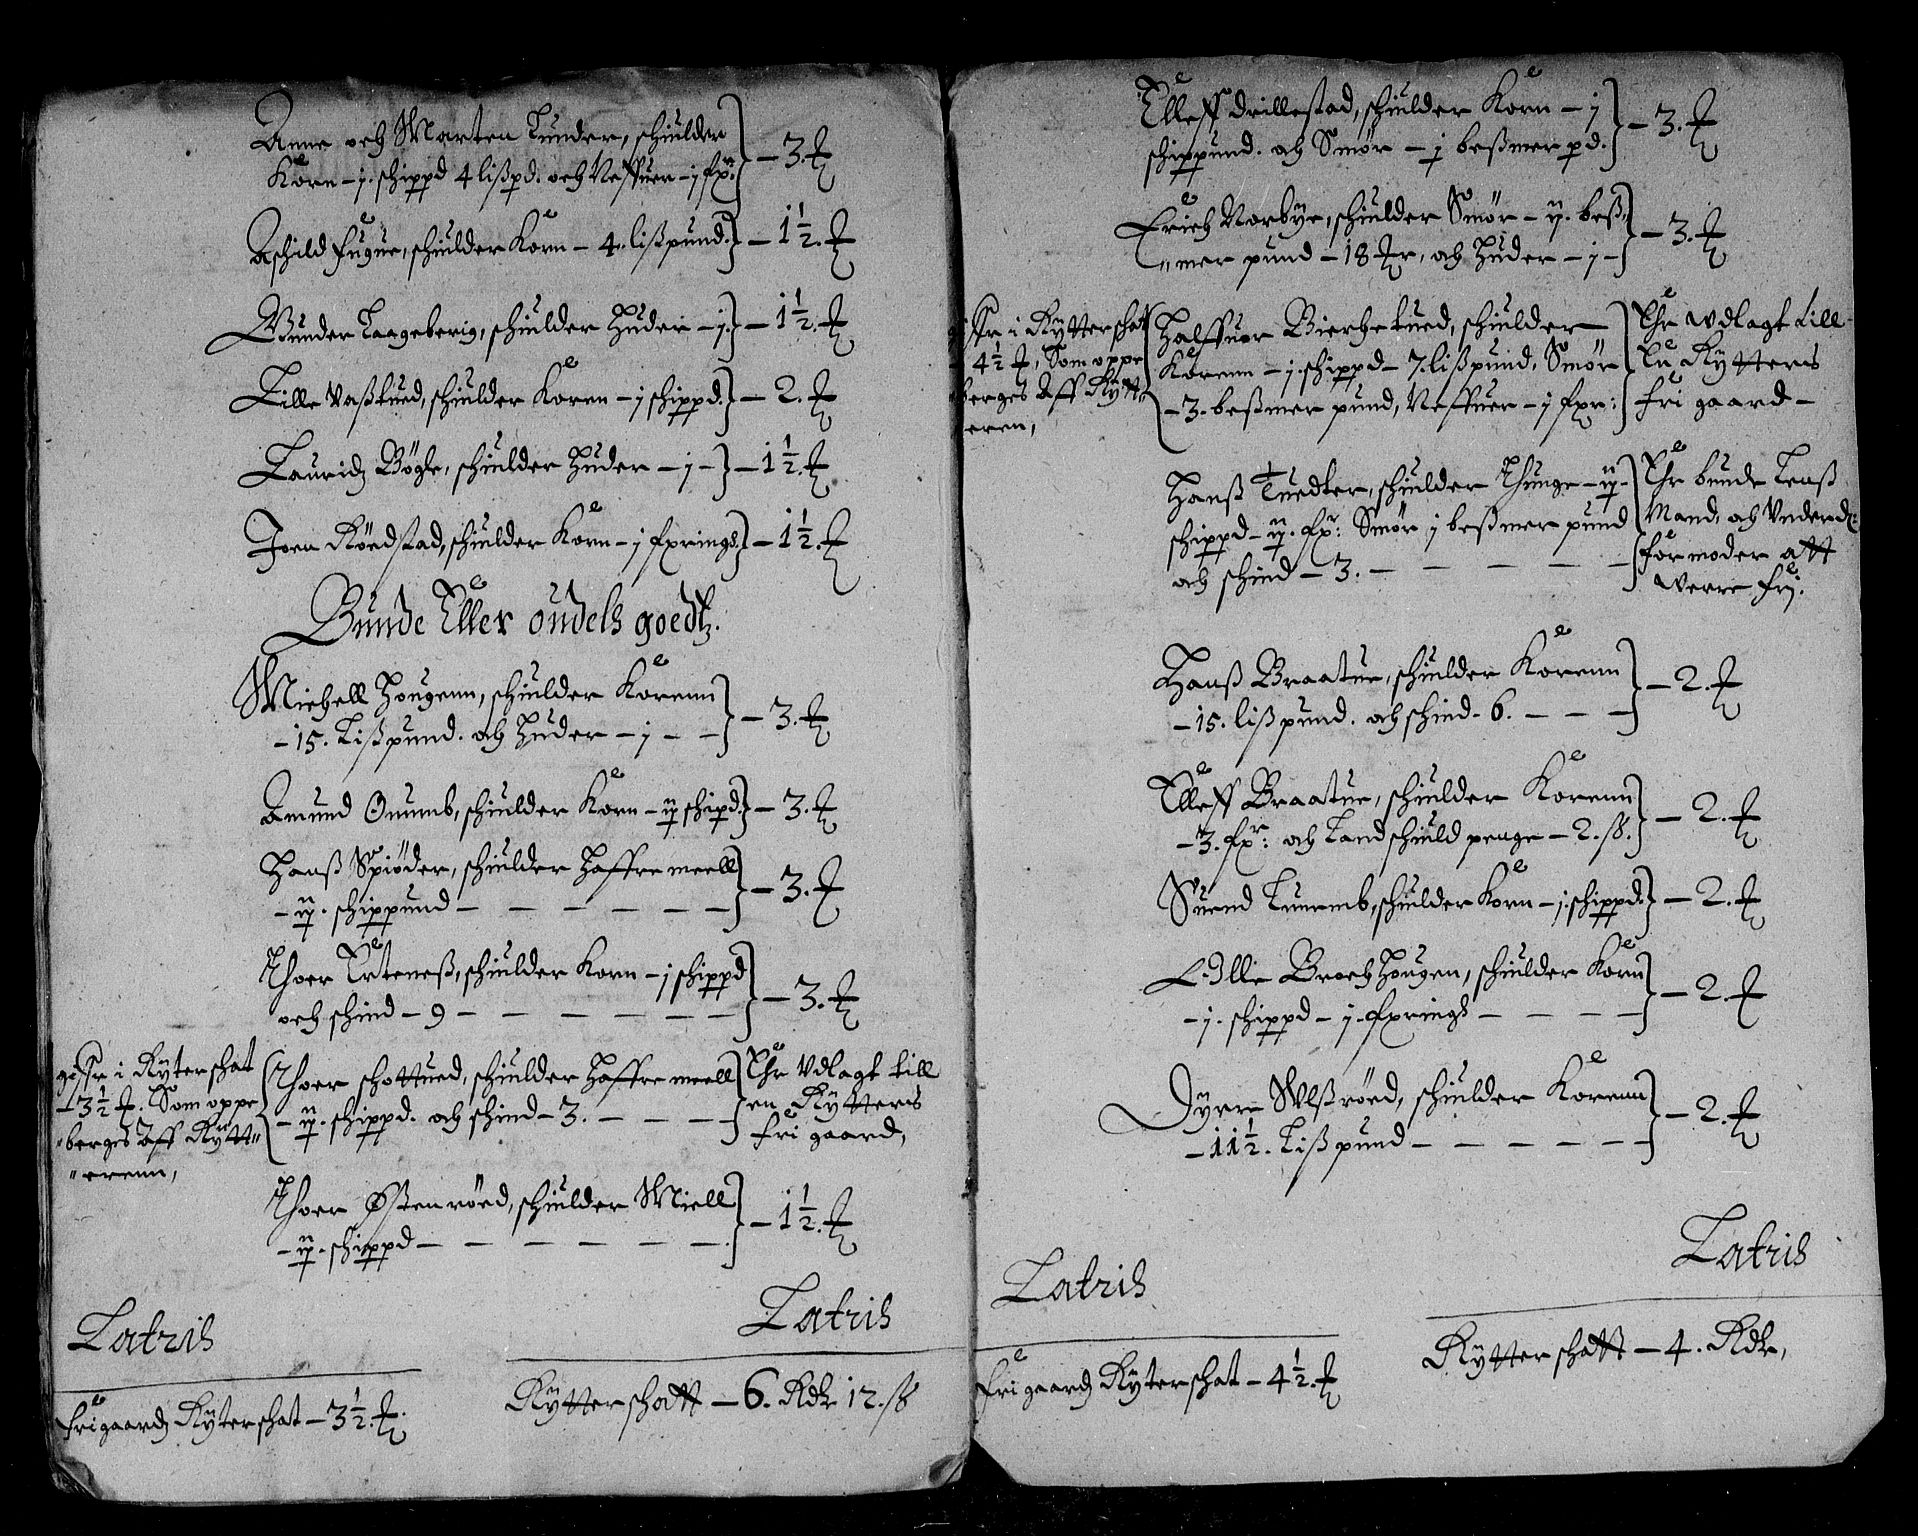 Anne och Marten Tunder, schiulder
Korn – j. schippd 4 lißpd. och Neffuer – j fxr:} – 3. ℔
Aschild Fugue, schiulder Korn – 4. lißpund.} – 1½. ℔
Gunder Taageberig, schiulder Huder – j.} – 1½. ℔
Tille Vaßtued, schiulder Korn – j schippd.} – 2. ℔
Lauridz Bögle, schiulder Huder – j –} – 1½. ℔
Joen Röedstad, schiulder Korn – j fxrings.} – 1½. ℔
Bunde Eller oudels goedtz.
Michell Hougenn, schiulder Korenn
– 15. Lißpund. och Huder – j – –} – 3. ℔
Amund Onumb, schiulder Korn – ij schipd.} – 3. ℔
Hanß Spiöder, schiulder Haffre meell
– ij. schippund – – – – – –} – 3. ℔
Thoer Erteneß, schiulder Korn – j schippd
och schind – 9 – – – – – –} – 3. ℔
giffr i Rÿterschat
– 3½ ℔. Som oppe
berges Aff Rÿtt„
„erenn,
Thoer schottued, schiulder Haffre meell
– ij. schippd. och schind – 3. – – – –
Ehr Vdlagt till
en Rÿtters
frj gaard,
Thoer Østenröed, schiulder Miell
– ij. schippd – – – – – –} – 1½. ℔
Latris
Latris
frigaardz Rÿterschat – 3½. ℔.
Rÿtterschatt – 6. Rdlr 12. ß
Elleff drillestad, schiulder Korn – j
schippund. och Smör – j beßmer pd.} – 3. ℔
Erich Norbÿe, schiulder Smör – ij. beß„
„mer pund – 18 ℔r, och Huder – j –} – 3. ℔
giffr i Rÿtterschat
4½ ℔, Som oppe
berges Aff Rÿtt„
eren,
Halffuor Bierche tued, schiulder
Korenn – j. schippd – 7. lißpund, Smör
– 3. beßmer pund, Neffuer – j fxr:
Ehr vdlagt till
Tu Rÿtters
fri gaard –
Hanß Tuedter, schiulder Thunge – ij
schippd – ij. fxr: Smör j beßmer pund
och schind – 3. – – – – –
Ehr bunde Lenß
Mand, och Vnderd:
formoder att
verre frj.
Hanß Braatue, schiulder Korenn
– 15. lißpund. och schind – 6. – – –} – 2. ℔
Elleff Braatue, schiulder Korenn
– 3. fxr: och Landschiuld penge – 2. ß.} – 2. ℔
Suend Tueemb, schiulder Korn – j. schippd.} – 2. ℔
Olle Broch Hougen, schiulder Korn
– j. schippd – j. fxrings – – – –} – 2. ℔
Dÿrre Wlßröed, schiulder Korenn
– 11½. Lißpund – – – – –} – 2. ℔
Latris
Latris
fri gaardz Rÿterschat – 4½. ℔
Rÿtterschatt – 4. Rdlr,